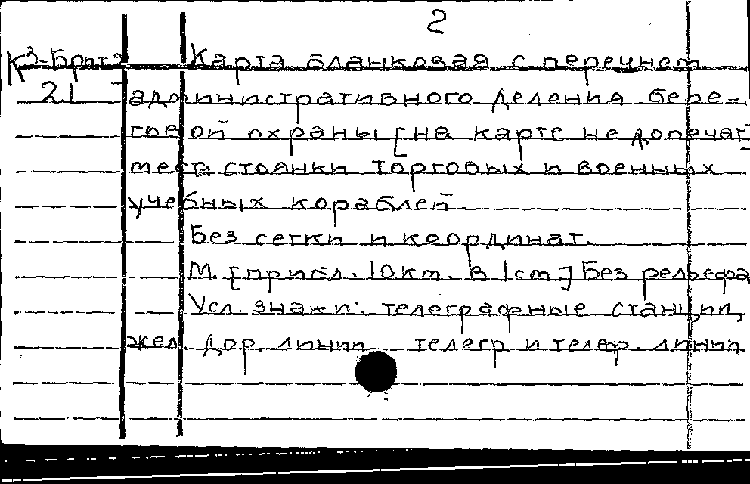 2
К3-Брит Карта бланковая с перечнем
21 административного деления бере-
говой охраны [на карте не допечат
места стоянки торговых и военных
учебных кораблей.
Без сетки и координат.
М. [прибл. 10km. в 1cm] Без рельефа
Усл. знаки: телеграфные станции,
жел. дор. линии телегр и телеф. линии